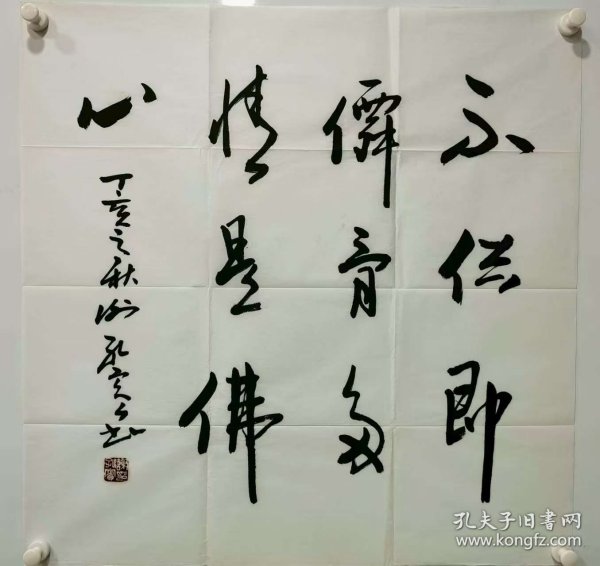 不俗即
仙骨多
情是佛
心
丁亥之秋
书
孔夫子旧书网
www.kongfz.com